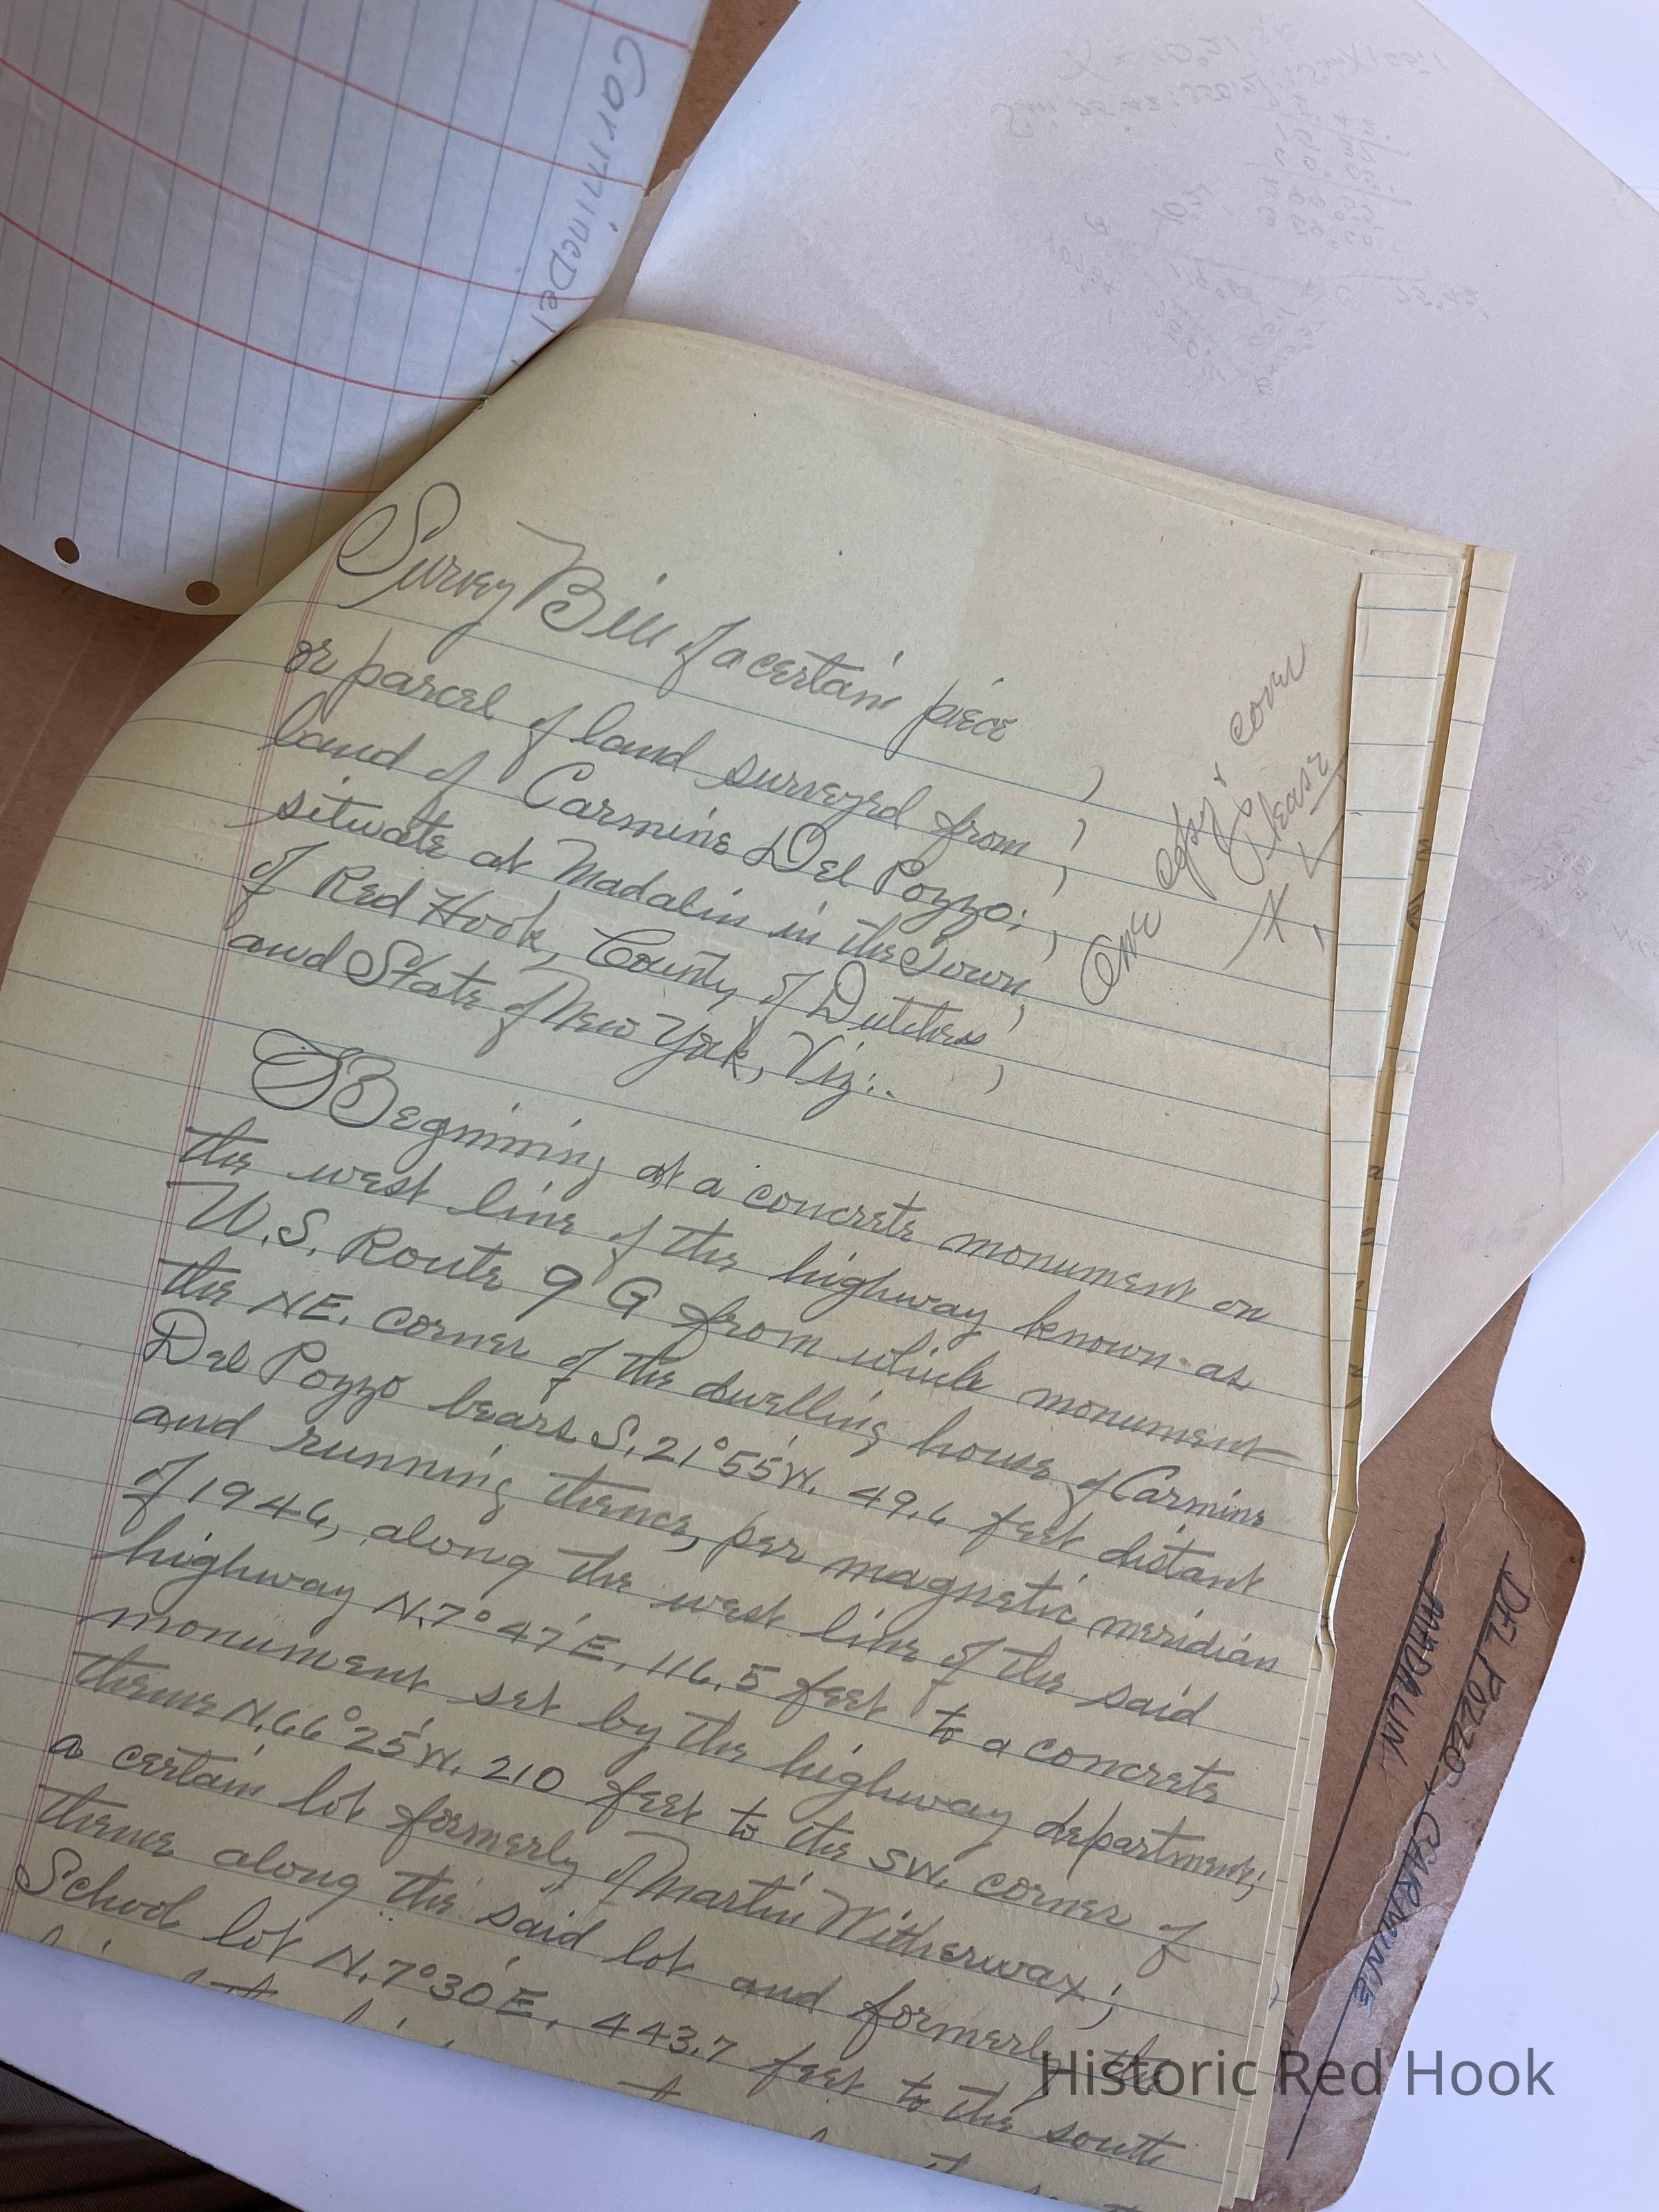 Carmine Del
Survey Bill of a certain piece )
or parcel of land surveyed from )
land of Carmine Del Pozzo; )
situate at Madalin in the Town, )
of Red Hook, County of Dutchess )
and State of New York, Viz:.. )
One copy & cover
Please
Beginning at a concrete monument on
the west line of the highway known as
U.S. Route 9 G from which monument
the NE. corner of the dwelling house of Carmine
Del Pozzo bears S. 21° 55' W. 49.6 feet distant
and running thence, per magnetic meridian
of 1946, along the west line of the said
highway N. 7° 47' E. 116.5 feet to a concrete
monument set by the highway department;
thence N. 66° 25' W. 210 feet to the SW. corner of
a certain lot formerly of Martin Witherwax;
thence along the said lot and formerly the
School lot N. 7° 30' E. 443.7 feet to the south
DEL POZZO, CARMINE
MADALIN
Historic Red Hook